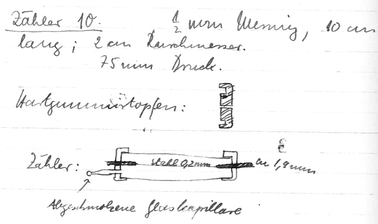 Zähler 10. 1/2 mm Messing, 10 cm
lang; 2 cm Durchmesser.
75 mm Druck.
Hartgummistopfen:
Zähler:
Stahl 0,2 mm
ca 1,9 mm
Abgeschmolzene Glaskapillare